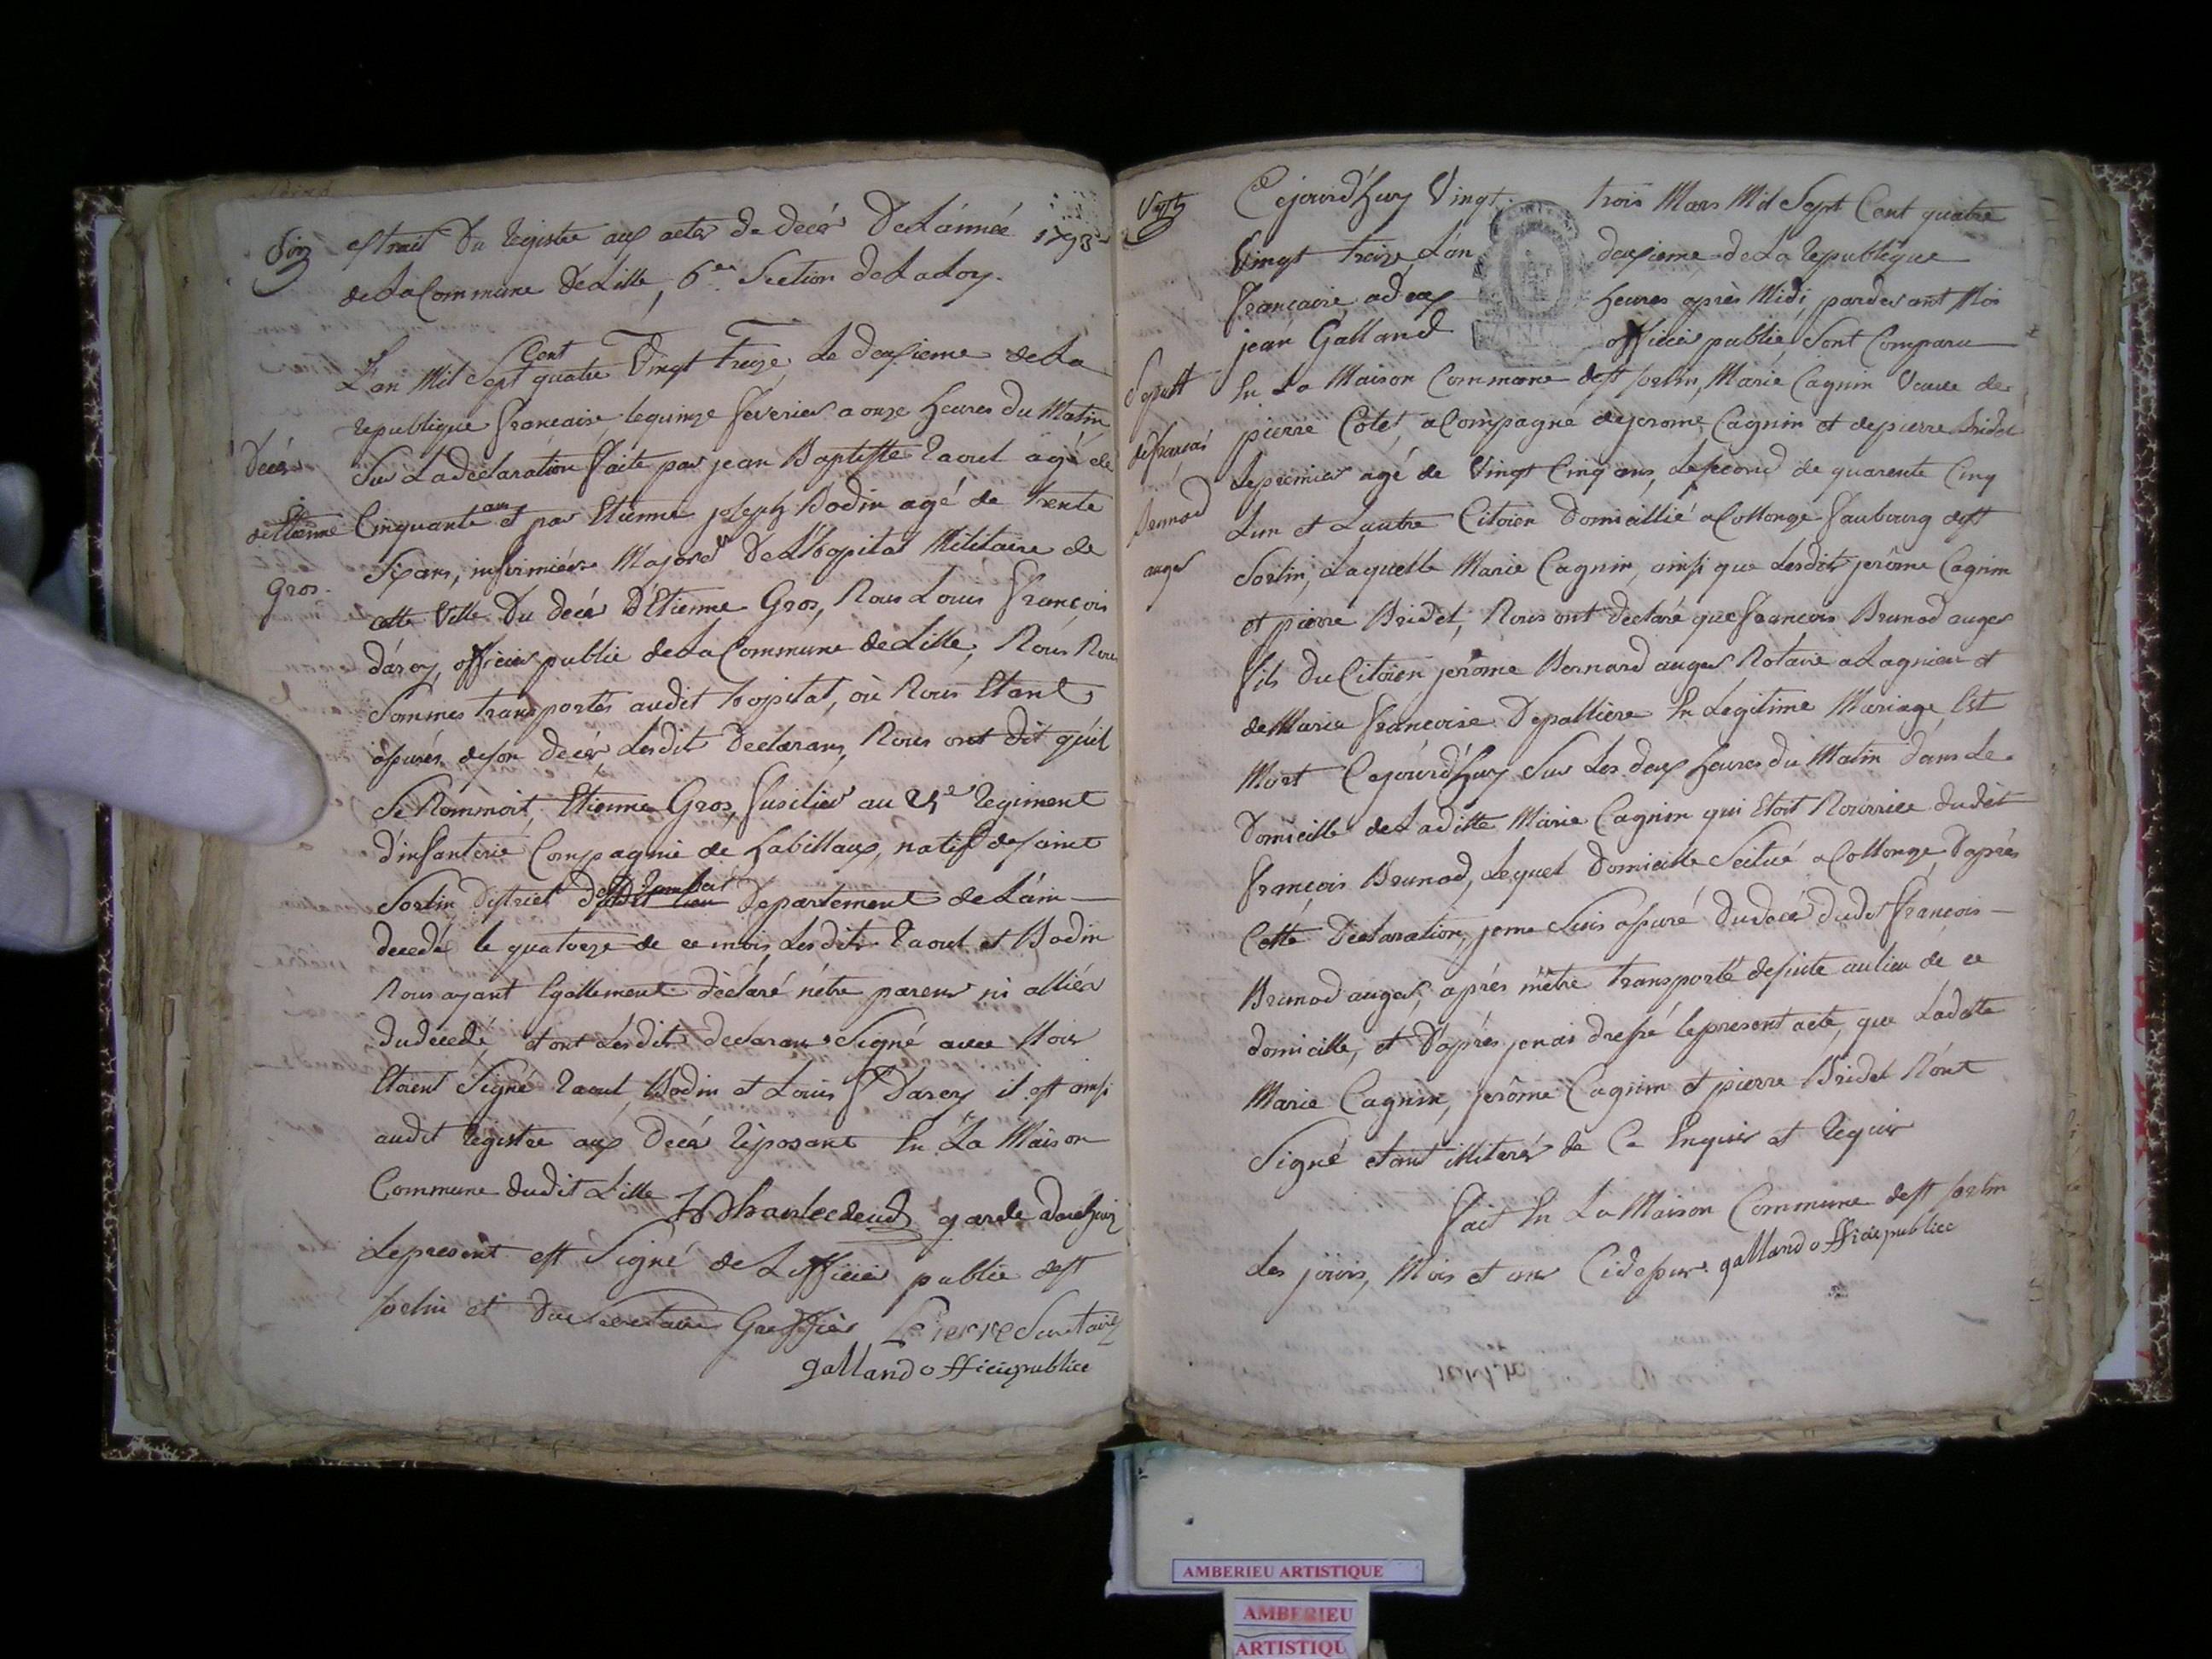 Six
extrait Du Registre aux actes de decés De L'année 1793
de La Commune De Lille, 6.e Section de La Loy.
Cent
L'an Mil Sept quatre Vingt Treize, Le deuxieme de La
republique francaise, le quinze fevrier a onze heures du Matin
Decés
Sur La declaration faite par jean Baptiste Raoul agé de
ans
d'Etienne
Cinquante et par Etienne joseph Bodin agé de trente
Six ans, infirmiers Majors De L'hopital Militaire de
Gros.
cette Ville Du decés D'Etienne Gros, Nous Louis François
Darcy, officier public de La Commune de Lille, Nous Nous
Sommes transportés audit hopital, où Nous Etant
assurés de son decés, Lesdits Declarans, Nous ont dit qu'il
Se Nommoit, Etienne Gros, fusilier au 25e Regiment
d'infanterie Compagnie de Labillaux, natif de saint
Sorlin District de St Rambert Departement de L'ain
decedé le quatorze de ce mois, Lesdits Raoul et Bodin
Nous ayant Egallement déclaré nétre parens ni alliés
du decedé et ont Lesdits declarans Signé avec Nous
Etoient Signé Raoul, Bodin et Louis F. Darcy il est ainsi
audit Registre aux Decés Réposant En La Maison
Commune dudit Lille garde D'archives
Le present est Signé de L'officier public de St
sorlin et Du Secretaire Greffier Pierre Secretaire
galland officier public
Sept
Cejourd'huy Vingt trois Mars Mil Sept Cent quatre
Vingt treize L'an deuxieme de La Republique
francaise, a deux heures après Midi, pardevant Moi
jean Galland officier public Sont Comparu
Sepult
En La Maison Commune de St sorlin, Marie Cagnin Veuve de
de francois
pierre Cotet, aCompagné de jerome Cagnin et de pierre Bridet
Le premier agé de Vingt Cinq ans, Le second de quarente Cinq
L'un et L'autre Citoien Domicillié a Collonge faubourg de St
auger
Sorlin, Laquelle Marie Cagnin, ainsi que Lesdits jerôme Cagnin
et pierre Bridet, Nous ont declaré que François Brunod auger
fils Du Citoien jerome Bernard auger Notaire a Lagnieu et
de Marie francoise Depalliere En Legitime Mariage, Est
Mort Cejourd'huy Sur Les deux heures du Matin dans Le
Domicille de Laditte Marie Cagnin qui Etoit Nourrice dudit
François Brunod, Lequel Domicille Scitué a Collonge, D'aprés
Cette Declaration, je me Suis assuré Du decé dudit François
Brunod auger, aprés m'être transporté de suite au lieu de ce
domicille, et D'aprés j'en ai dressé le present acte, que Ladite
Marie Cagnin, jerôme Cagnin et pierre Bridet N'ont
Signé etant illiterés de Ce Enquis et Requis
fait En La Maison Commune de St sorlin
Les jours, Mois et an Cidessus. galland officier public
AMBERIEU ARTISTIQUE
AMBERIEU
ARTISTIQU